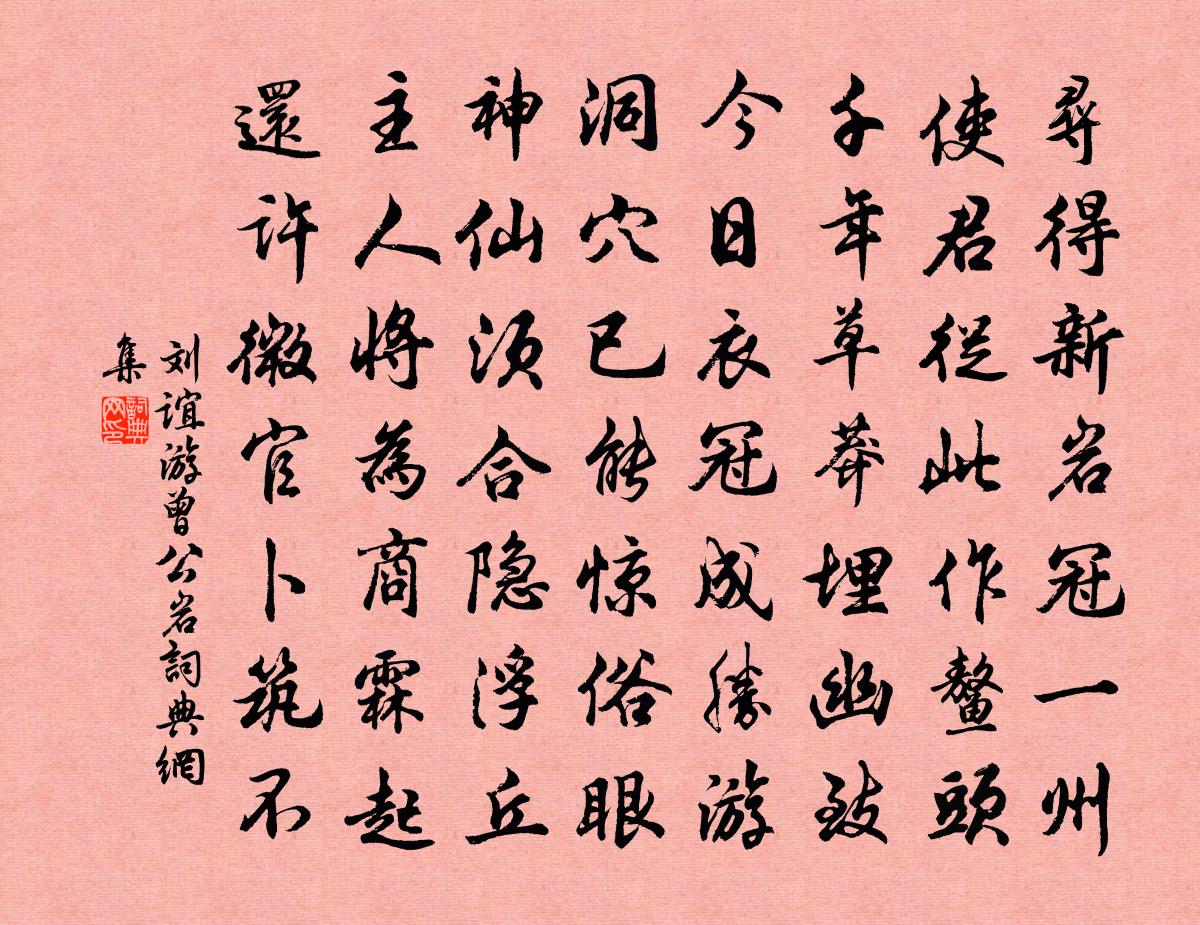 尋得新岩冠一州
使君從此作鳌頭
千年草莽埋幽致
今日衣冠成勝游
洞穴已能惊俗眼
神仙須合隐浮丘
主人將為商霖起
還許微官卜筑不
刘谊游曾公岩詞典網
集
詞典网印